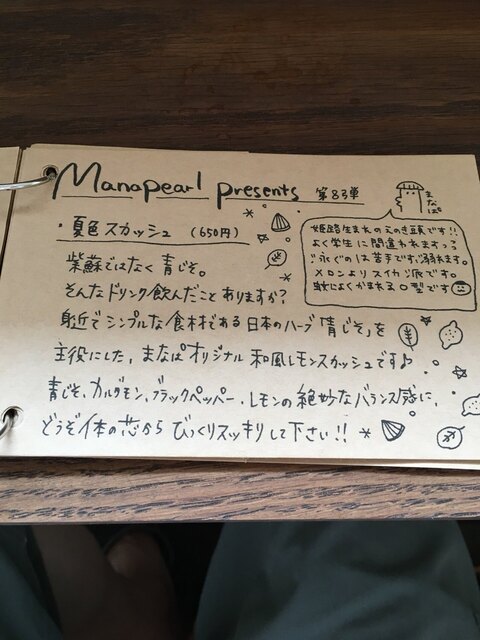 Manapearl presents 第8弾
まなぱ
・夏色スカッシュ (650円)
姫路生まれのえのき頭です!!
よく学生に間違われますっっ
泳ぐのは苦手です。溺れます。
メロンよりスイカ派です。
蚊によくかまれるO型です
紫蘇ではなく青じそ。
そんなドリンク飲んだことありますか?
身近でシンプルな食材である日本のハーブ「青じそ」を
主役にした、まなぱオリジナル和風レモンスカッシュです♪
青じそ、カルダモン、ブラックペッパー、レモンの絶妙なバランス感に、
どうぞ体の芯からびっくりスッキリして下さい!!